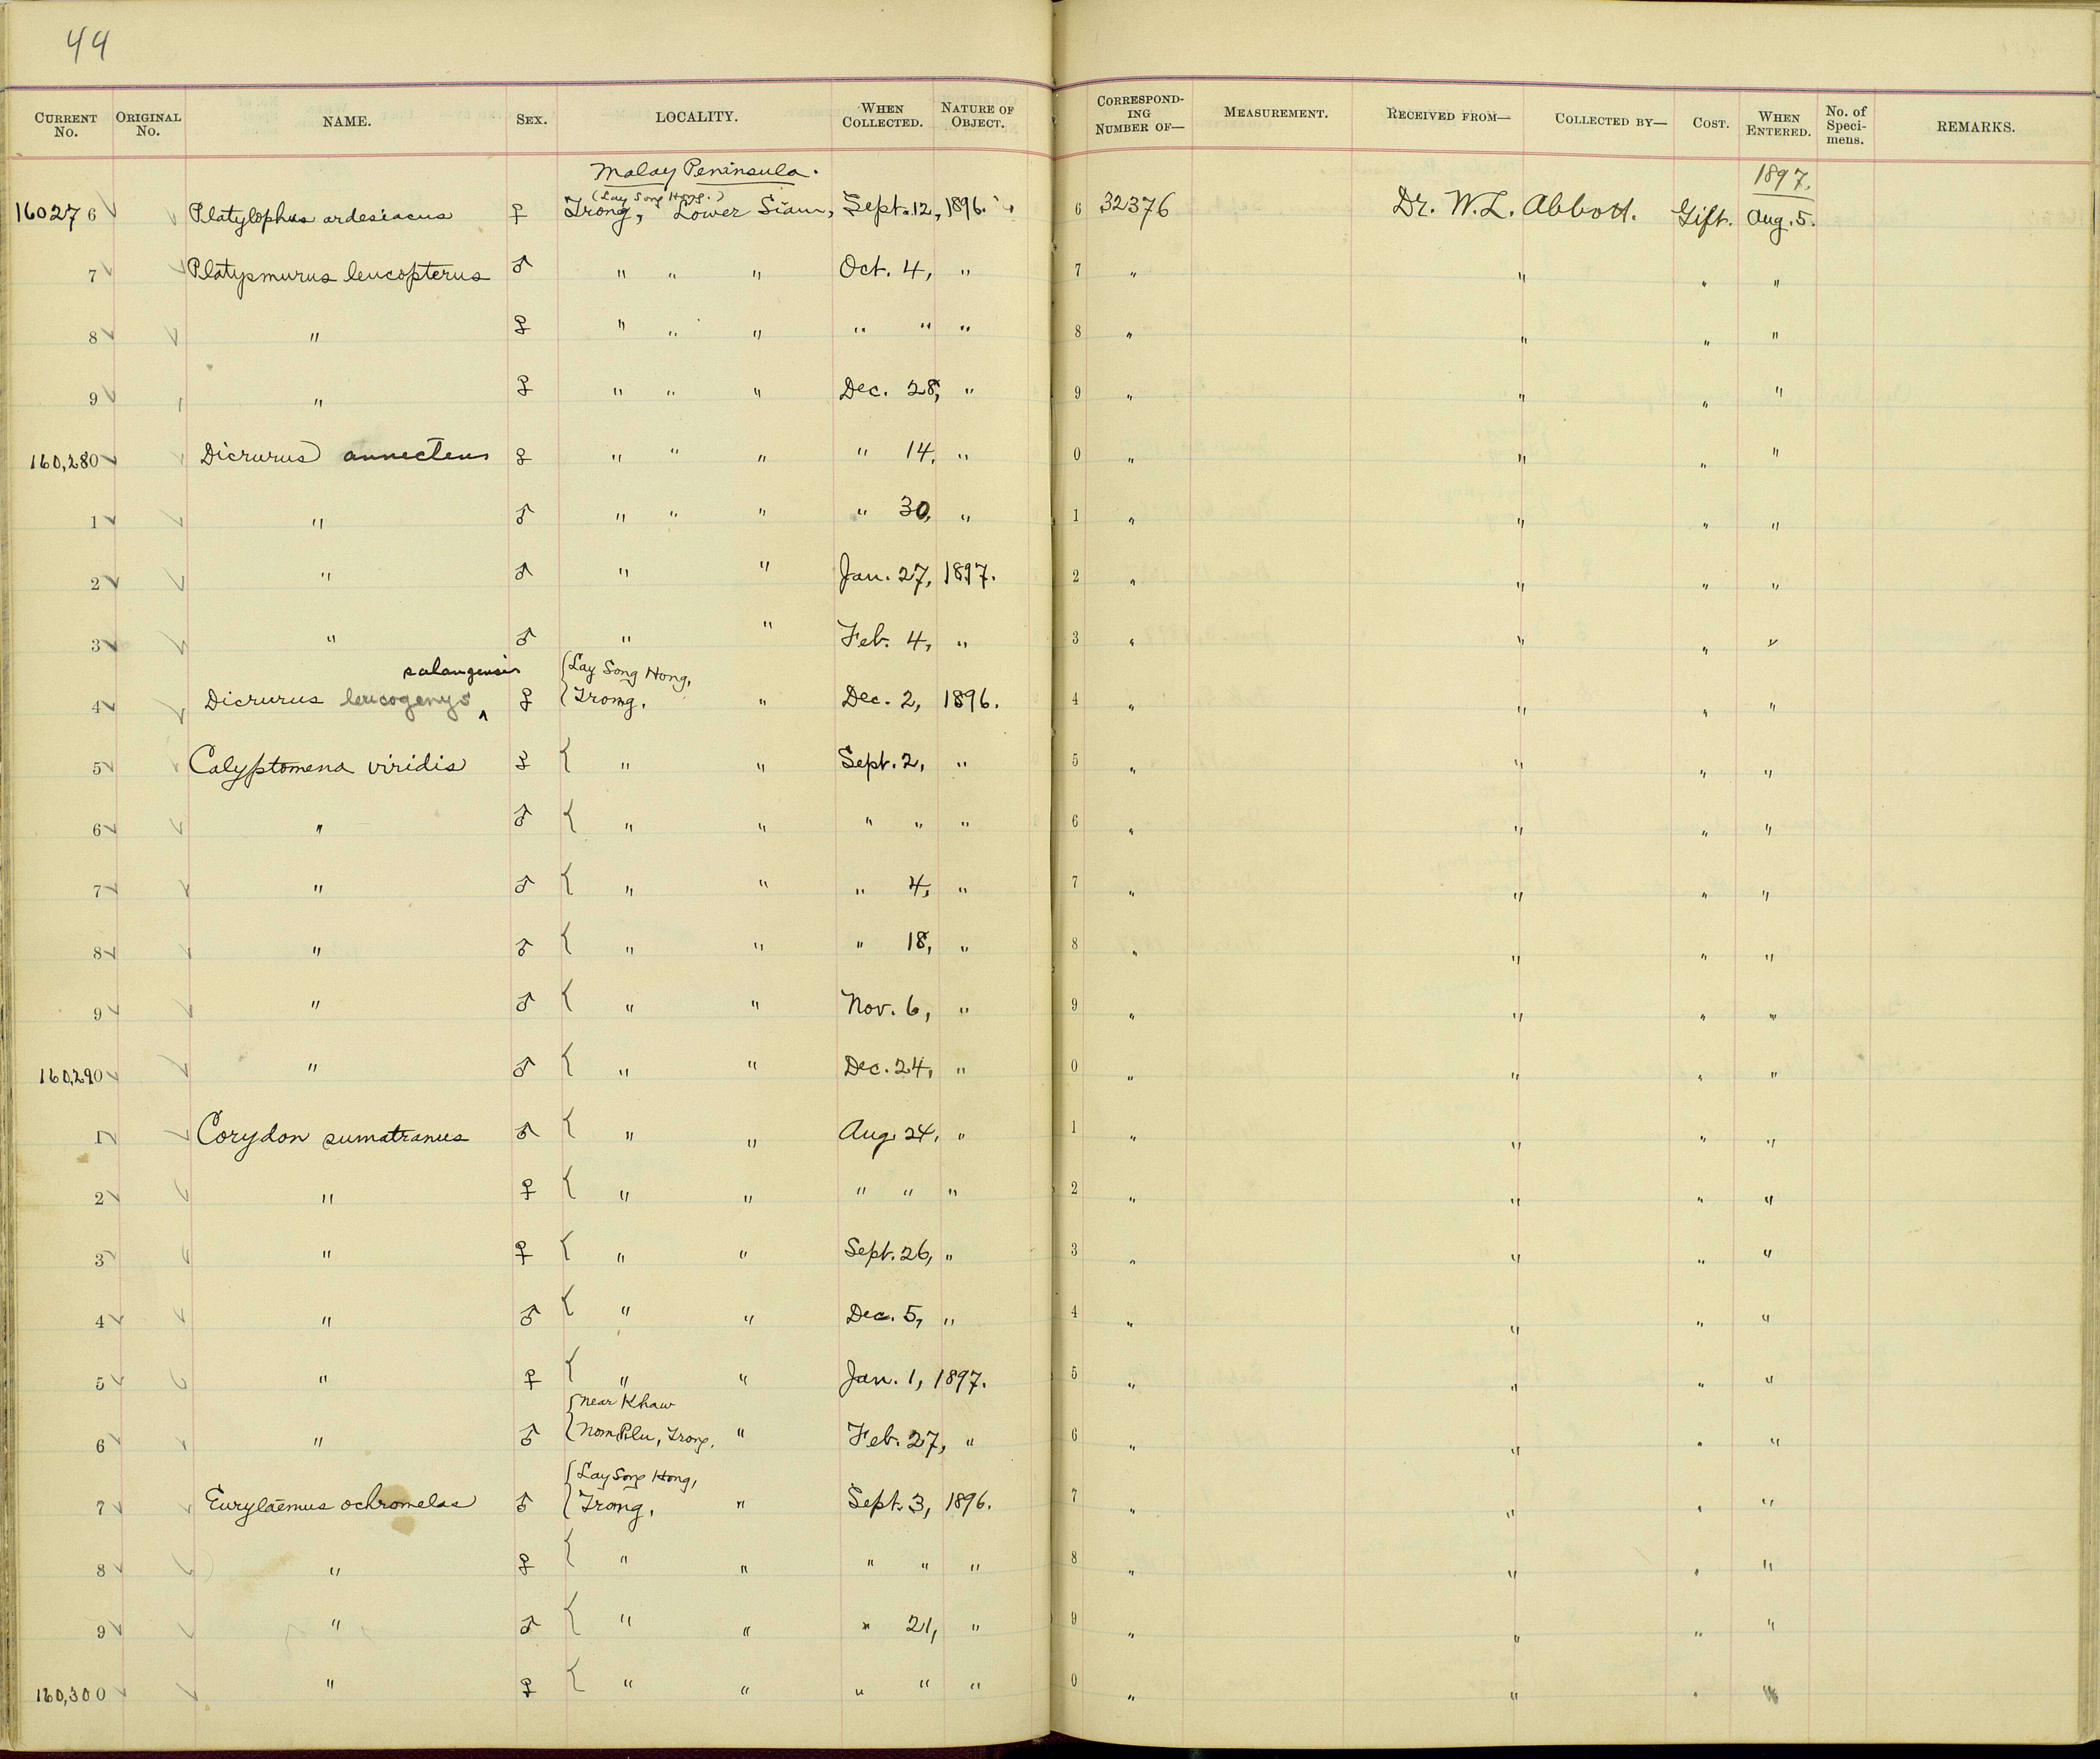 44
CURRENT No. ORIGINAL No. NAME. SEX. LOCALITY. WHEN COLLECTED. NATURE OF OBJECT. CORRESPONDING NUMBER OF— MEASUREMENT. RECEIVED FROM— COLLECTED BY— COST. WHEN ENTERED. No. of Specimens. REMARKS.
Malay Peninsula. 1897.
(Lay Song Hong.)
160276 Platylophus ardesiacus ♀ Trong, Lower Siam, Sept. 12, 1896. 6 32376 Dr. W. L. Abbott. Gift. Aug. 5.
7 Platysmurus leucopterus ♂ " " " Oct. 4, " 7 " " " "
8 " ♀ " " " " " " 8 " " " "
9 " ♀ " " " Dec. 28, " 9 " " " "
160,280 Dicrurus annectens ♀ " " " " 14, " 0 " " " "
1 " ♂ " " " " 30, " 1 " " " "
2 " ♂ " " Jan. 27, 1897. 2 " " " "
3 " ♂ " " Feb. 4, " 3 " " " "
salangensis {Lay Song Hong,
4 Dicrurus leucogenys ^ ♀ {Trong, " Dec. 2, 1896. 4 " " " "
5 Calyptomena viridis ♀ { " " Sept. 2, " 5 " " " "
6 " ♂ { " " " " " 6 " " " "
7 " ♂ { " " " 4, " 7 " " " "
8 " ♂ { " " " 18, " 8 " " " "
9 " ♂ { " " Nov. 6, " 9 " " " "
160,290 " ♂ { " " Dec. 24, " 0 " " " "
1 Corydon sumatranus ♂ { " " Aug. 24, " 1 " " " "
2 " ♀ { " " " " " 2 " " " "
3 " ♀ { " " Sept. 26, " 3 " " " "
4 " ♂ { " " Dec. 5, " 4 " " " "
5 " ♀ { " " Jan. 1, 1897. 5 " " " "
{near Khaw
6 " ♂ {Nom Plu, Trong, " Feb. 27, " 6 " " " "
{Lay Song Hong,
7 Eurylaemus ochromelas ♂ {Trong, " Sept. 3, 1896. 7 " " " "
8 " ♀ { " " " " " 8 " " " "
9 " ♂ { " " " 21, " 9 " " " "
160,300 " ♀ { " " " " " 0 " " " "